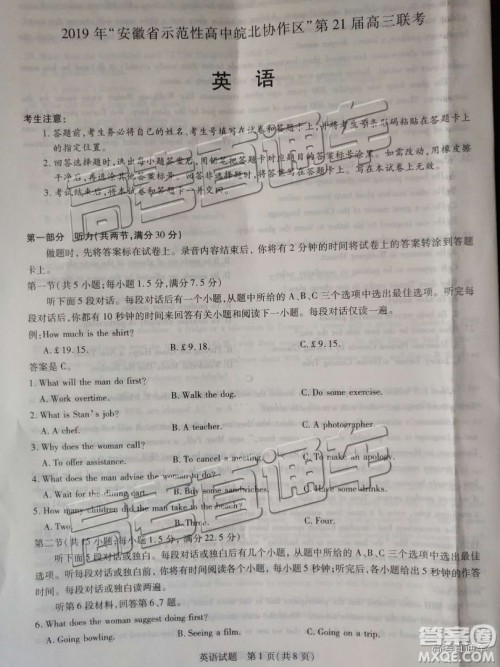 2019年“安徽省示范性高中皖北协作区”第21届高三联考
英 语
考生注意:
1. 答题前,考生务必将自己的姓名、考生号填写在试卷和答题卡上,并将考生号条形码粘贴在答题卡上
的指定位置。
2. 回答选择题时,选出每小题答案后,用铅笔把答题卡对应题目的答案标号涂黑。如需改动,用橡皮擦
干净后,再选涂其他答案标号。回答非选择题时,将答案写在答题卡上。写在本试卷上无效。
3. 考试结束后,将本试卷和答题卡一并交回。
第一部分 听力(共两节,满分30分)
做题时,先将答案标在试卷上。录音内容结束后,你将有2分钟的时间将试卷上的答案转涂到答题
卡上。
第一节(共5小题;每小题1.5分,满分7.5分)
听下面5段对话。每段对话后有一个小题,从题中所给的A、B、C三个选项中选出最佳选项。听完每
段对话后,你都有10秒钟的时间来回答有关小题和阅读下一小题。每段对话仅读一遍。
例:How much is the shirt?
A. £19.15. B. £9.18. C. £9.15.
答案是C。
1. What will the man do first?
A. Work overtime. B. Walk the dog. C. Do exercise.
2. What is Stan's job?
A. A chef. B. A teacher. C. A photographer.
3. Why does the woman call?
A. To offer assistance. B. To cancel a meeting. C. To make an apology.
4. What does the man advise the woman to do?
A. Wait for the dining cart. B. Buy some sandwiches. C. Have some drinks.
5. How many children did the man take to the beach?
A. Two. B. Three. C. Four.
第二节(共15小题;每小题1.5分,满分22.5分)
听下面5段对话或独白。每段对话或独白后有几个小题,从题中所给的A、B、C三个选项中选出最佳
选项。听每段对话或独白前,你将有时间阅读各个小题,每小题5秒钟;听完后,各小题将给出5秒钟的作答
时间。每段对话或独白读两遍。
听第6段材料,回答第6、7题。
6. What does the woman suggest doing first?
A. Going bowling. B. Seeing a film. C. Going shopping.
英语试题 第1页(共8页)
高考直通车
高考直通车
高考直通车
答案圈
MXQE.COM